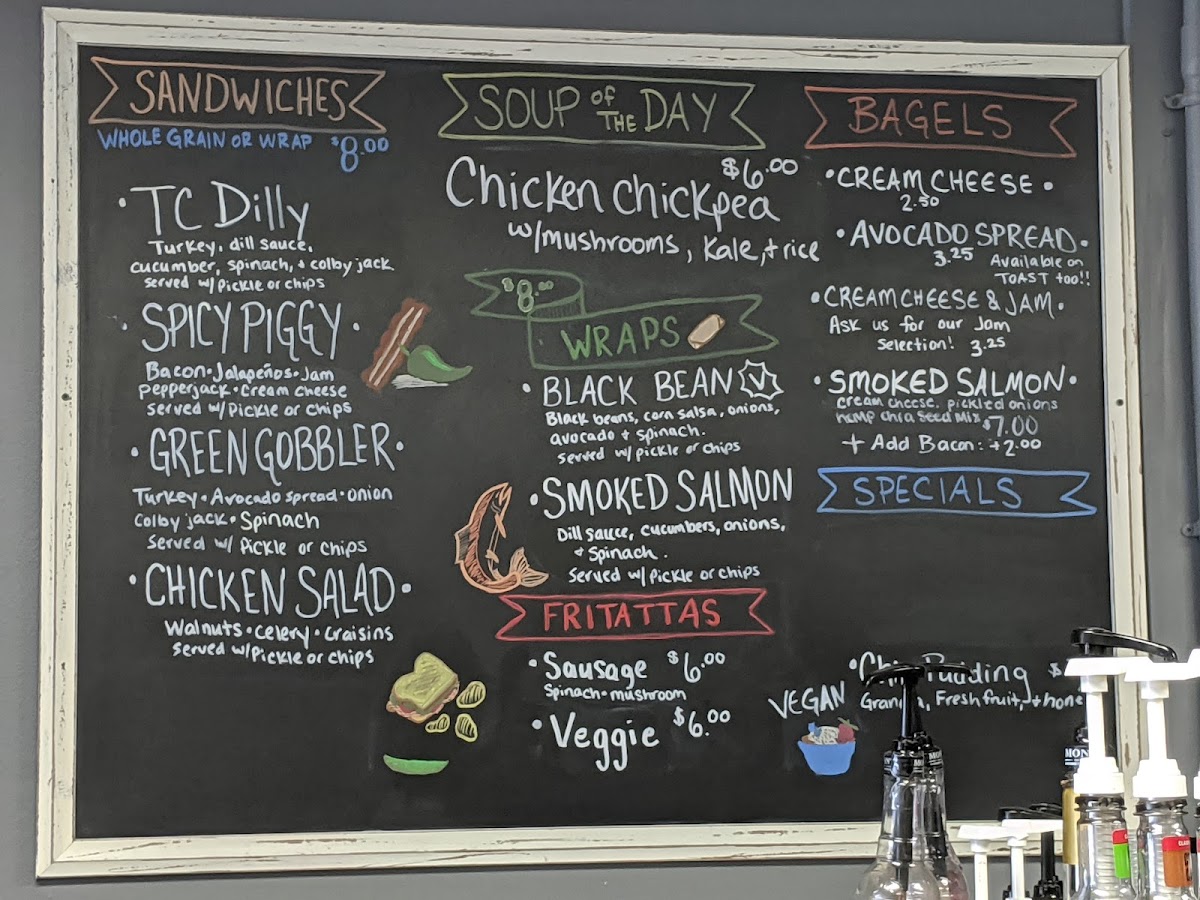 SANDWICHES
WHOLE GRAIN OR WRAP $8.00
• TC Dilly
Turkey, dill sauce,
cucumber, spinach, + colby jack
served w/pickle or chips
• SPICY PIGGY •
Bacon • Jalapeños • Jam
Pepperjack • Cream cheese
served w/Pickle or chips
• GREEN GOBBLER •
Turkey • Avocado spread • onion
Colby jack • Spinach
Served w/ Pickle or chips
• CHICKEN SALAD •
Walnuts • celery • craisins
served w/Pickle or chips
SOUP OF THE DAY
$6.00
Chicken Chickpea
w/mushrooms, Kale, + rice
$8.00
WRAPS
• BLACK BEAN V
Black beans, corn salsa, onions,
avocado + spinach.
served w/ pickle or chips
• SMOKED SALMON
Dill sauce, cucumbers, onions,
+ Spinach.
Served w/ Pickle or chips
FRITATTAS
• Sausage $6.00
Spinach • mushroom
• Veggie $6.00
BAGELS
• CREAM CHEESE •
2.50
• AVOCADO SPREAD •
3.25 Available on
TOAST too!!
• CREAM CHEESE & JAM •
Ask us for our Jam
Selection! 3.25
• SMOKED SALMON •
cream cheese, pickled onions
hemp chia seed mix $7.00
+ Add Bacon: +2.00
SPECIALS
• Pudding $
VEGAN
Fresh fruit, +